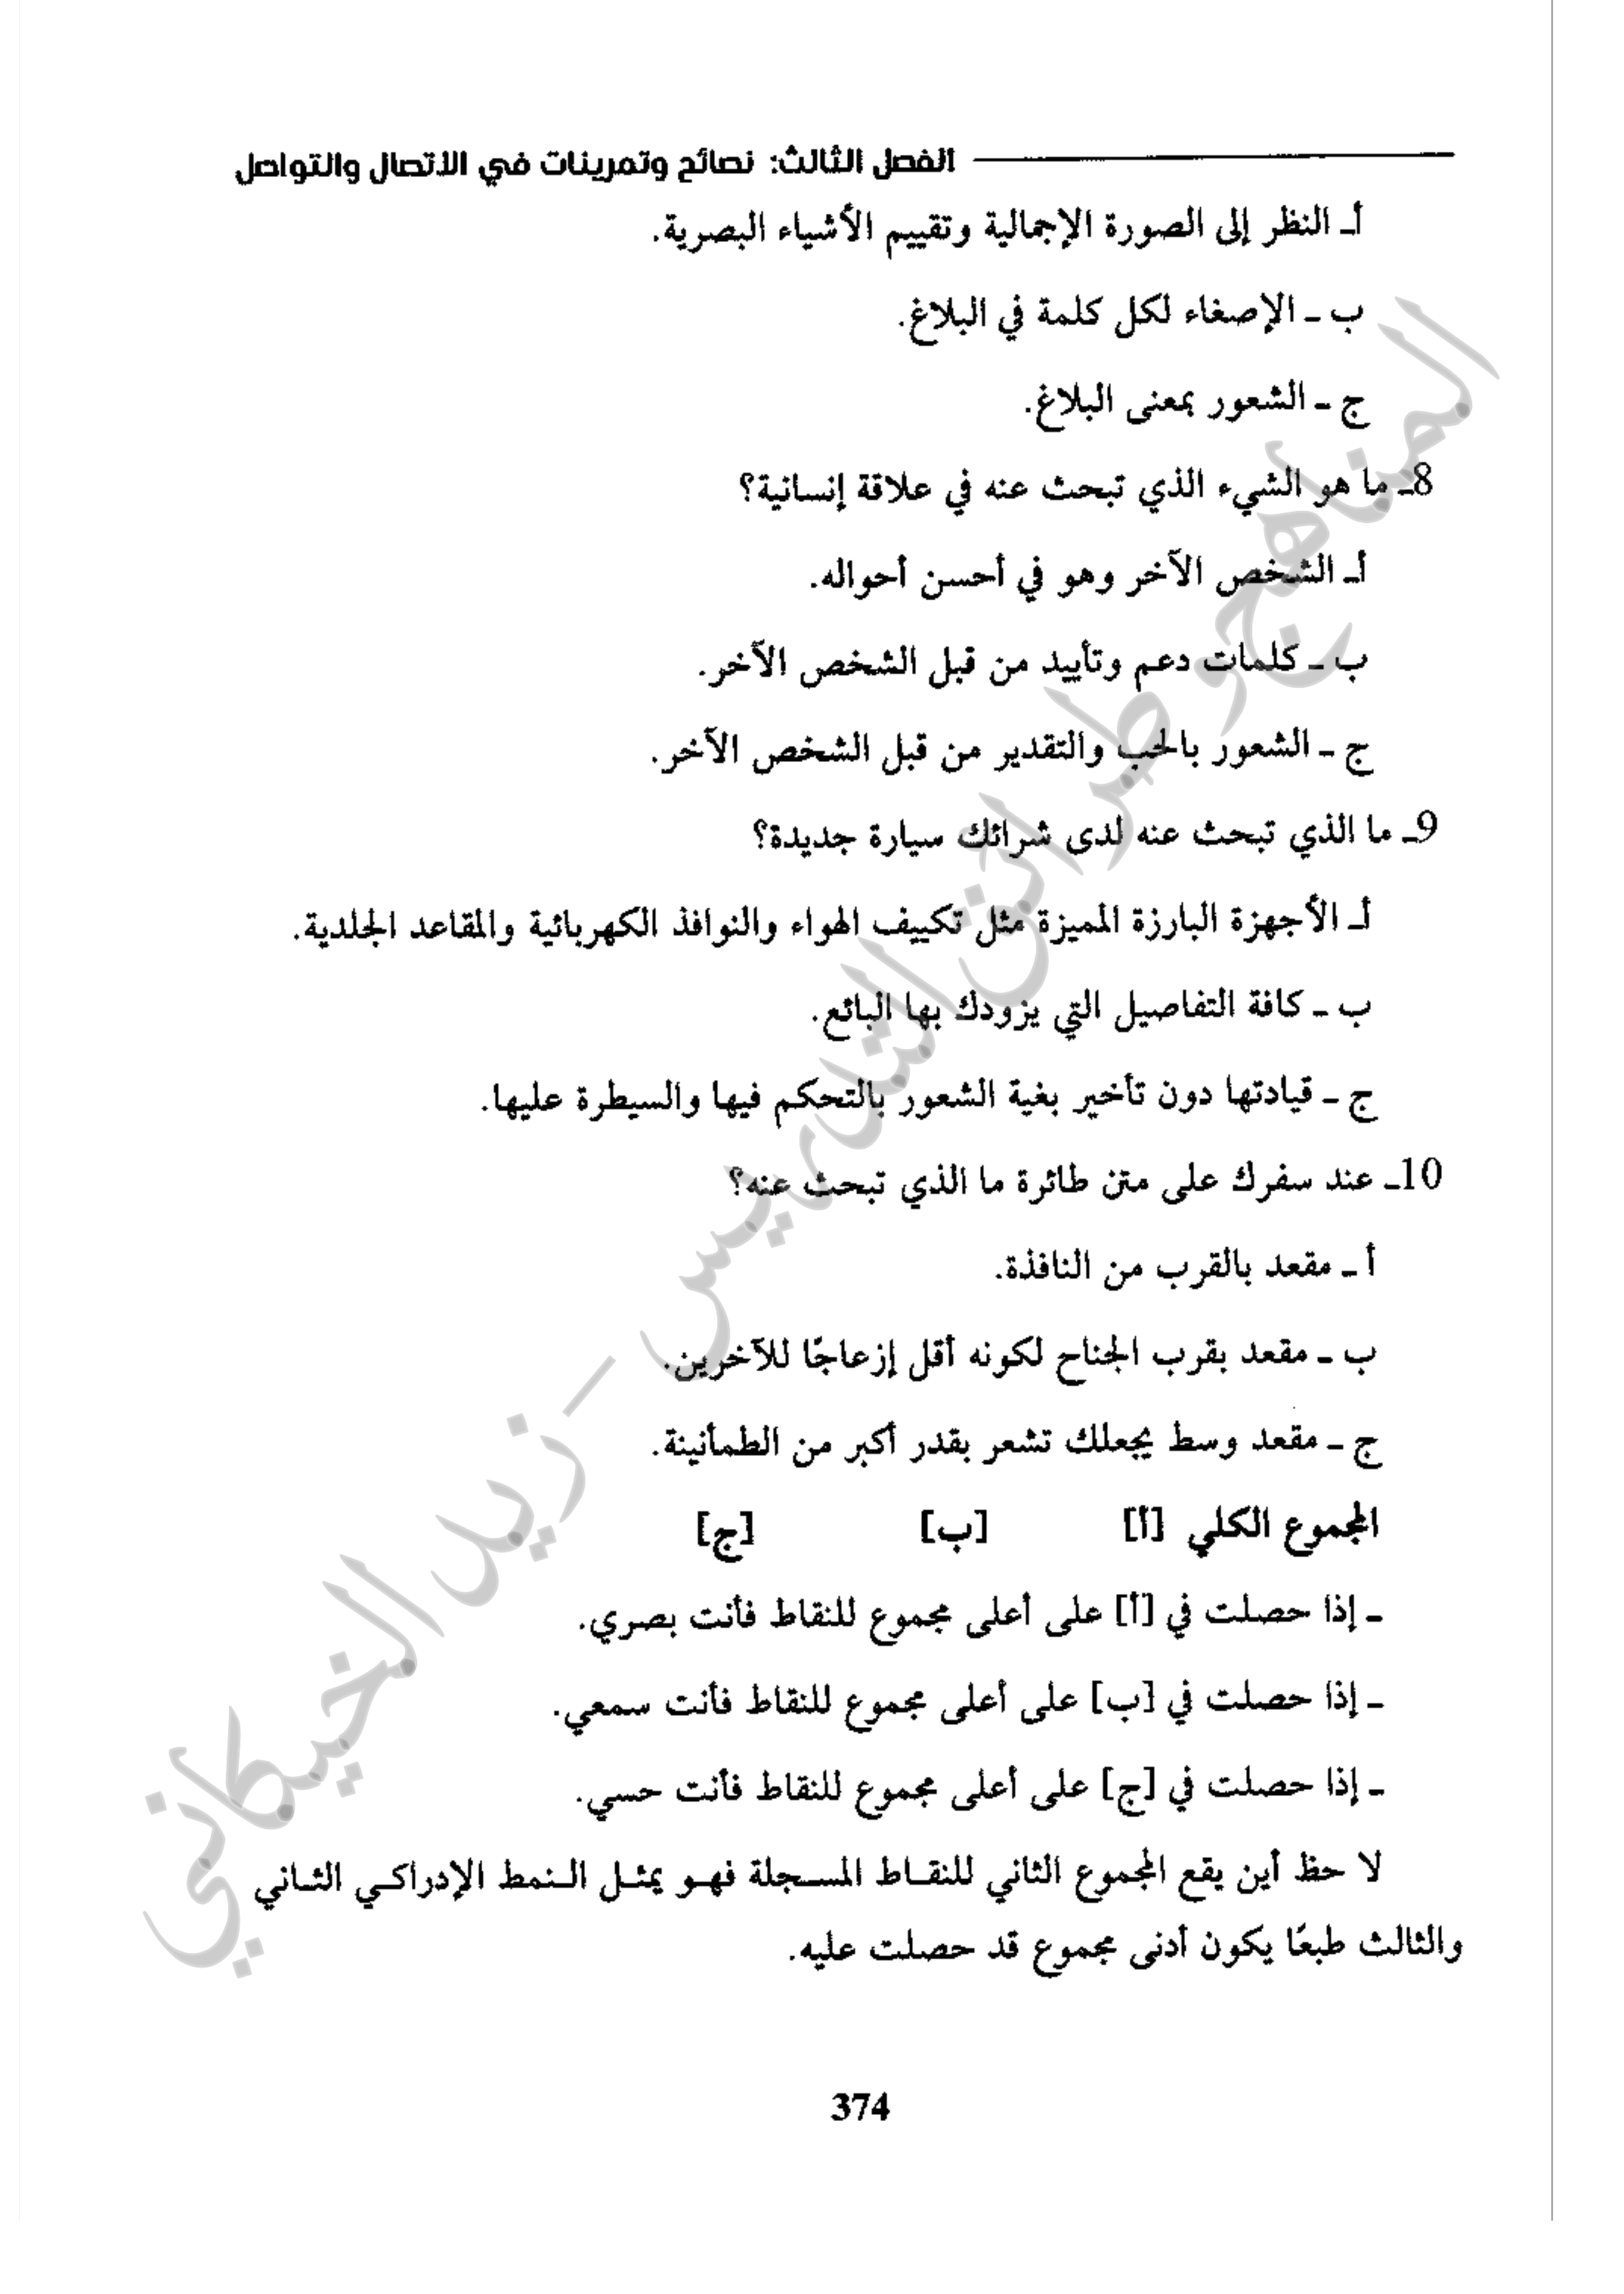 الفصل الثالث: نصائح وتمرينات في الاتصال والتواصل
أـ النظر إلى الصورة الإجمالية وتقييم الأشياء البصرية.
ب ـ الإصغاء لكل كلمة في البلاغ.
ج ـ الشعور بمعنى البلاغ.
8ـ ما هو الشيء الذي تبحث عنه في علاقة إنسانية؟
أـ الشخص الآخر وهو في أحسن أحواله.
ب ـ كلمات دعم وتأييد من قبل الشخص الآخر.
ج ـ الشعور بالحب والتقدير من قبل الشخص الآخر.
9ـ ما الذي تبحث عنه لدى شرائك سيارة جديدة؟
أـ الأجهزة البارزة المميزة مثل تكييف الهواء والنوافذ الكهربائية والمقاعد الجلدية.
ب ـ كافة التفاصيل التي يزودك بها البائع.
ج ـ قيادتها دون تأخير بغية الشعور بالتحكم فيها والسيطرة عليها.
10ـ عند سفرك على متن طائرة ما الذي تبحث عنه؟
أ ـ مقعد بالقرب من النافذة.
ب ـ مقعد بقرب الجناح لكونه أقل إزعاجًا للآخرين.
ج ـ مقعد وسط يجعلك تشعر بقدر أكبر من الطمأنينة.
المجموع الكلي [أ] [ب] [ج]
ـ إذا حصلت في [أ] على أعلى مجموع للنقاط فأنت بصري.
ـ إذا حصلت في [ب] على أعلى مجموع للنقاط فأنت سمعي.
ـ إذا حصلت في [ج] على أعلى مجموع للنقاط فأنت حسي.
لا حظ أين يقع المجموع الثاني للنقاط المسجلة فهو يمثل النمط الإدراكي الثاني
والثالث طبعًا يكون أدنى مجموع قد حصلت عليه.
374
المناهج وطرائق التدريس - زيد الخيكاني